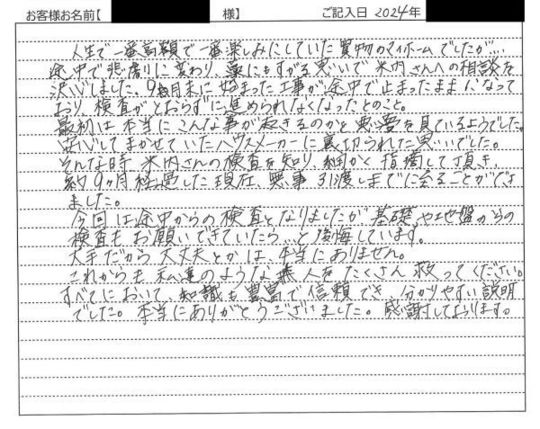 お客様お名前【 様】 ご記入日 2024年
人生で一番高額で一番楽しみにしていた買物のマイホームでしたが…
途中で悲劇に変わり、藁にもすがる思いで米内さんへの相談を
決心しました。9月末に始まった工事が途中で止まったままになって
おり、検査がとおらずに進められなくなったとのこと。
最初は本当にこんな事が起きるのかと悪夢を見ているようでした。
安心してまかせていたハウスメーカーに裏切られた思いでした。
そんな時、米内さんの検査を知り、細かく指摘して頂き、
約9ヶ月経過した現在、無事引渡しまでに至ることができ
ました。
今回は途中からの検査となりましたが基礎や地盤からの
検査もお願いできていたら…と後悔しています。
大手だから大丈夫とかは、本当にありません。
これからも私達のような人をたくさん救ってください。
すべてにおいて、知識も豊富で信頼でき、分かりやすい説明
でした。本当にありがとうございました。感謝しております。